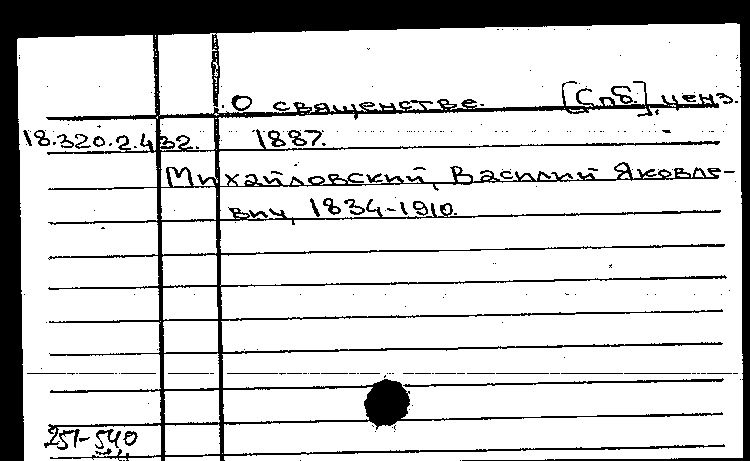 О священстве. [Спб.], ценз.
18.320.2.432. 1887.
Михайловский, Василий Яковле-
вич, 1834-1910.
251-540